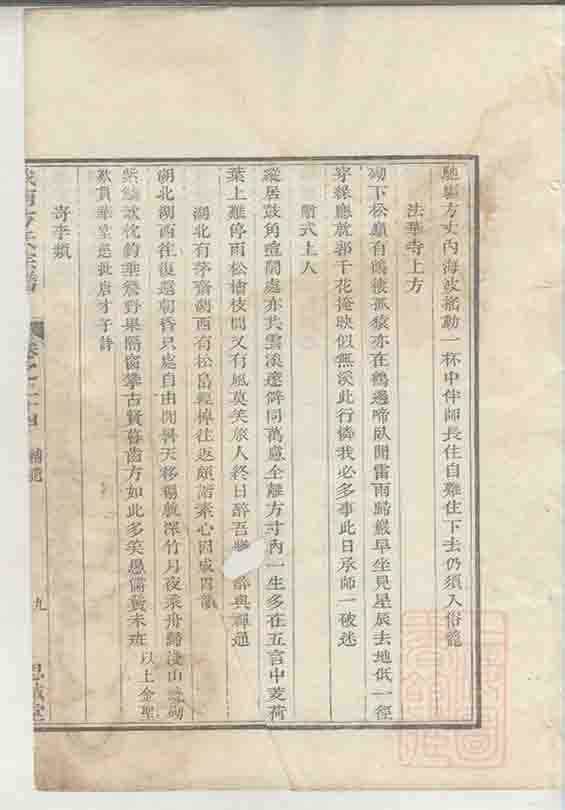 馳驅方丈內海波搖動一杯中伴師長住自難住下去仍須入俗籠
法華寺上方
砌下松巔自鶴棲孤猿亦在鶴邊啼臥聞雷雨歸巖早坐見星辰去地低一徑
穿緣應就郭千花掩映似無溪此行憐我必多事此日承師一破迷
贈式上人
縱居鼓角喧鬧處亦共雲溪邃僻同萬慮全離方寸內一生多在五言中芰荷
葉上難停雨松檜枝間又有風莫笑旅人終日醉吾 醉與禪通
湖北有茅齋湖西有松島輕棹往返頗諧素心因成四韻
湖北湖西往復還朝昏只處自由間暑天移榻就深竹月夜乘舟歸淺山 砌
紫鱗欹枕釣垂 野果隔窗攀古賢暮齒方如此多笑愚儒鬢未班
以上金聖
歎貫華堂選批唐才子詩
寄李頻
卷之二十四
補遺
九
思誠堂